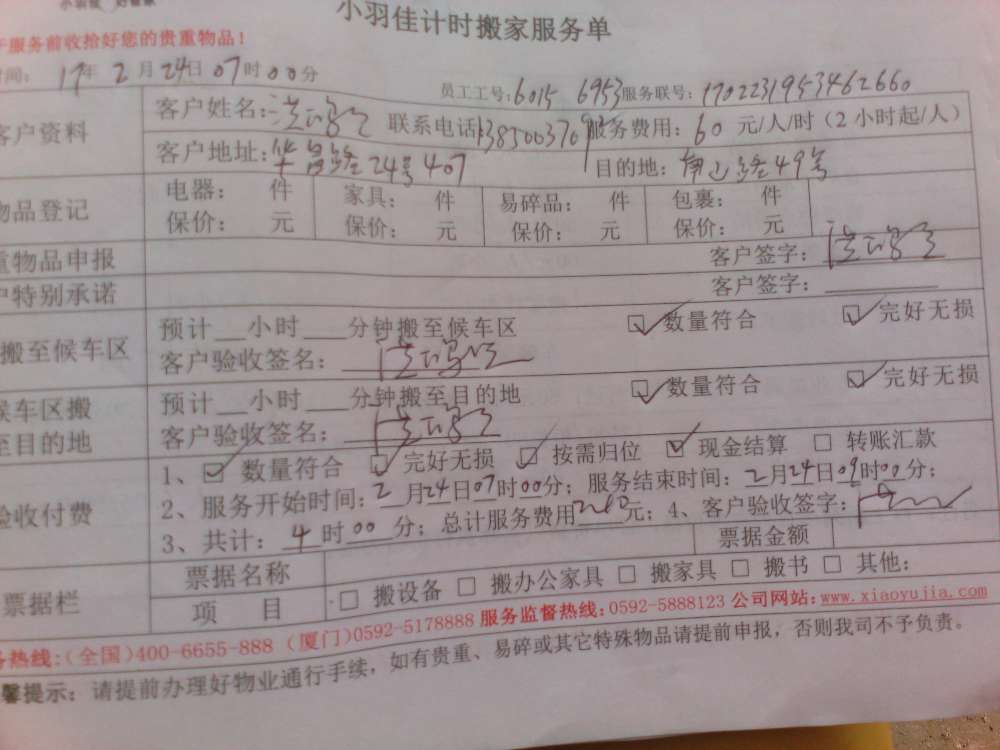 小羽佳计时搬家服务单
服务前收拾好您的贵重物品！
时间: 17年2月24日07时00分
员工工号:6015 6953服务联号: 1702231953462660
客户资料
客户姓名: 联系电话 服务费用: 60 元/人/时（2小时起/人）
客户地址: 24号407 目的地: 49号
物品登记
电器: 件 家具: 件 易碎品: 件 包裹: 件
保价: 元 保价: 元 保价: 元 保价: 元
重物品申报 客户签字:
户特别承诺 客户签字:
搬至候车区
预计__小时___分钟搬至候车区 ☑数量符合 ☑完好无损
客户验收签名:
候车区搬
至目的地
预计__小时___分钟搬至目的地 ☑数量符合 ☑完好无损
客户验收签名:
验收付费
1、☑ 数量符合 ☑ 完好无损 ☑ 按需归位 ☑ 现金结算 □ 转账汇款
2、服务开始时间: 2月24日07时00分; 服务结束时间: 2月24日09时00分;
3、共计: 4时00分; 总计服务费用 元; 4、客户验收签字:
票据栏
票据名称 票据金额
项 目 □ 搬设备 □ 搬办公家具 □ 搬家具 □ 搬书 □ 其他:
务热线:(全国)400-6655-888 (厦门)0592-5178888 服务监督热线:0592-5888123 公司网站:www.xiaoyujia.com
馨提示: 请提前办理好物业通行手续, 如有贵重、易碎或其它特殊物品请提前申报, 否则我司不予负责。